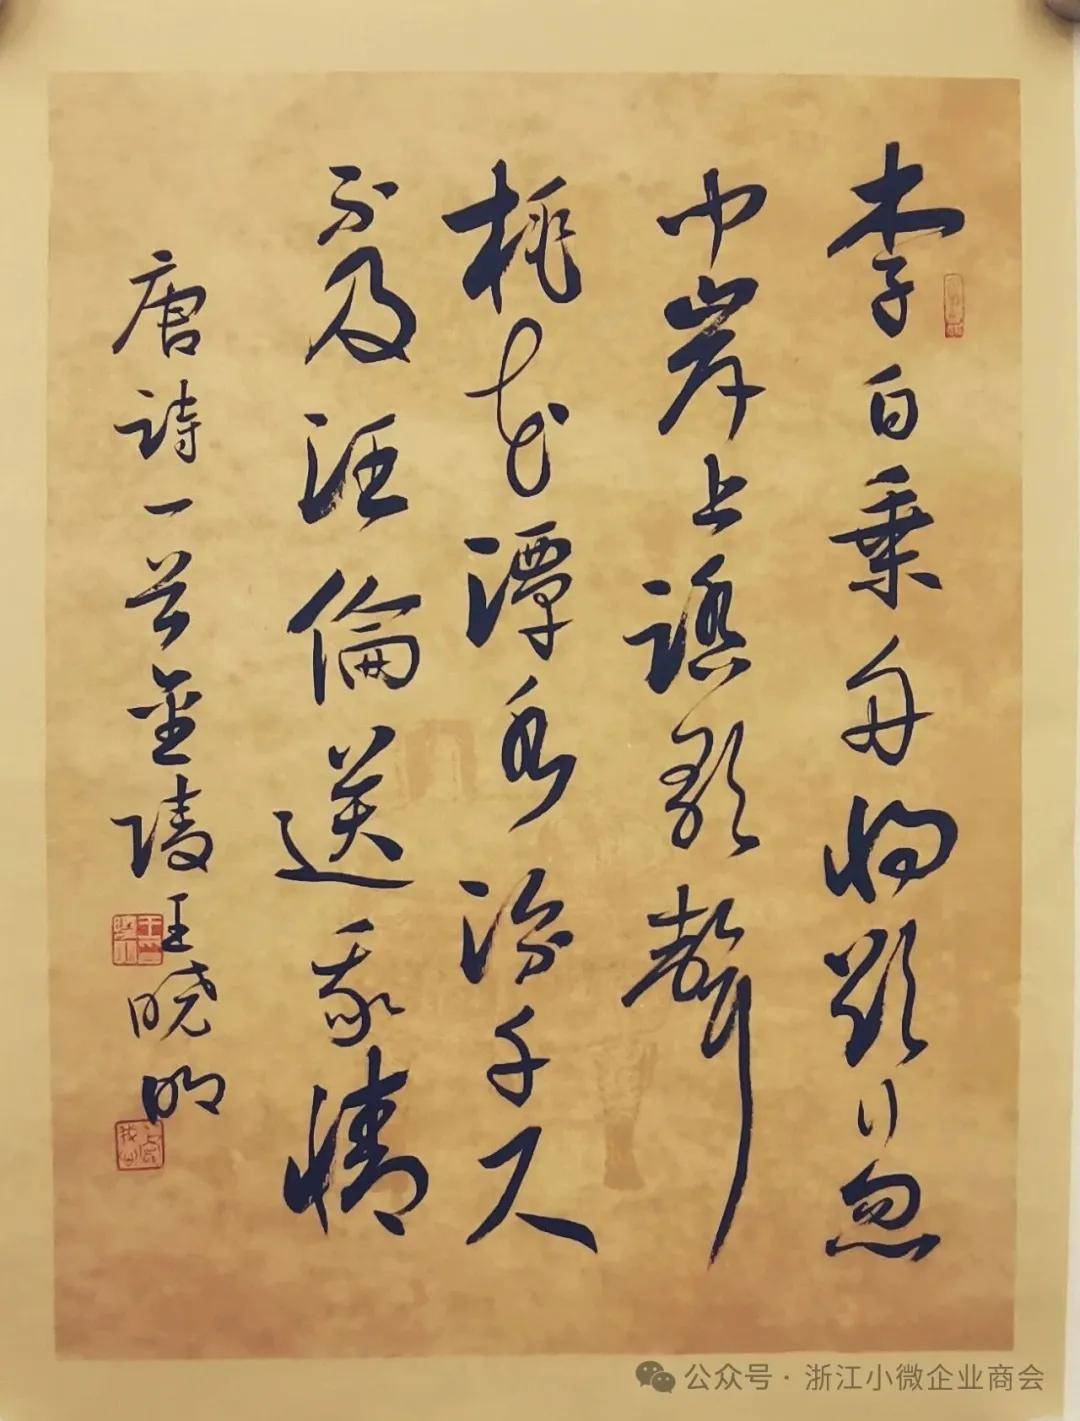 李白乘舟将欲行忽
闻岸上踏歌聲
桃花潭水深千尺
不及汪倫送我情
唐诗一首金陵王晓明
公众号·浙江小微企业商会